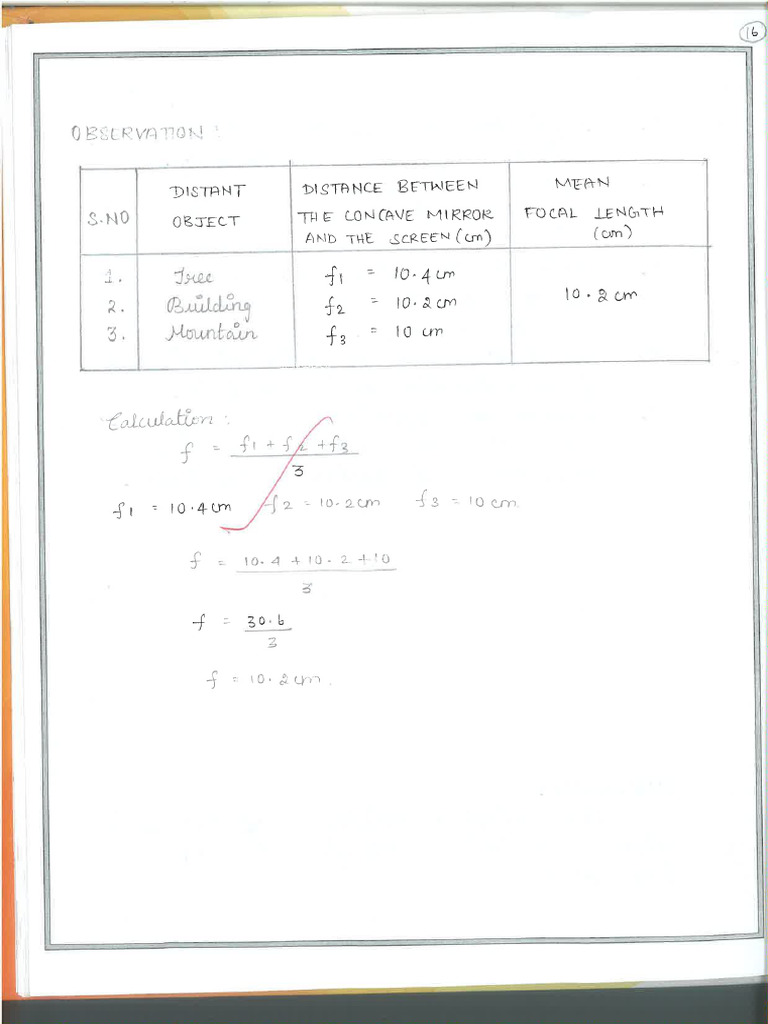 16
OBSERVATION :
S.NO
DISTANT
OBJECT
DISTANCE BETWEEN
THE CONCAVE MIRROR
AND THE SCREEN (cm)
MEAN
FOCAL LENGTH
(cm)
1. Tree f1 = 10.4cm
2. Building f2 = 10.2cm
3. Mountain f3 = 10 cm
10.2 cm
Calculation :
f = f1 + f2 + f3
3
f1 = 10.4cm f2 = 10.2cm f3 = 10cm
f = 10.4 + 10.2 + 10
3
f = 30.6
3
f = 10.2cm.